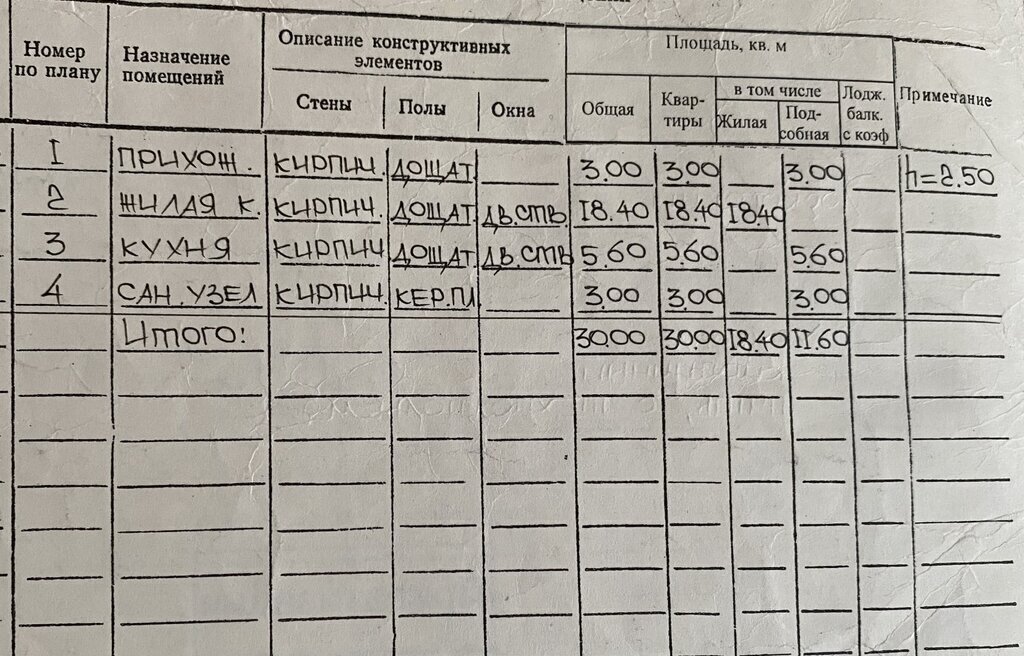 Номер по плану | Назначение помещений | Описание конструктивных элементов | Площадь, кв. м | Примечание
Стены | Полы | Окна | Общая | Квар- тиры | в том числе | Лодж. балк. с коэф
Жилая | Под- собная
1 ПРИХОЖ. КИРПИЧ. ДОЩАТ. 3.00 3.00 3.00 h=2.50
2 ЖИЛАЯ К. КИРПИЧ. ДОЩАТ. ДВ.СТВ. 18.40 18.40 18.40
3 КУХНЯ КИРПИЧ ДОЩАТ. ДВ.СТВ 5.60 5.60 5.60
4 САН.УЗЕЛ КИРПИЧ. КЕР.ПЛ 3.00 3.00 3.00
Итого: 30.00 30.00 18.40 11.60